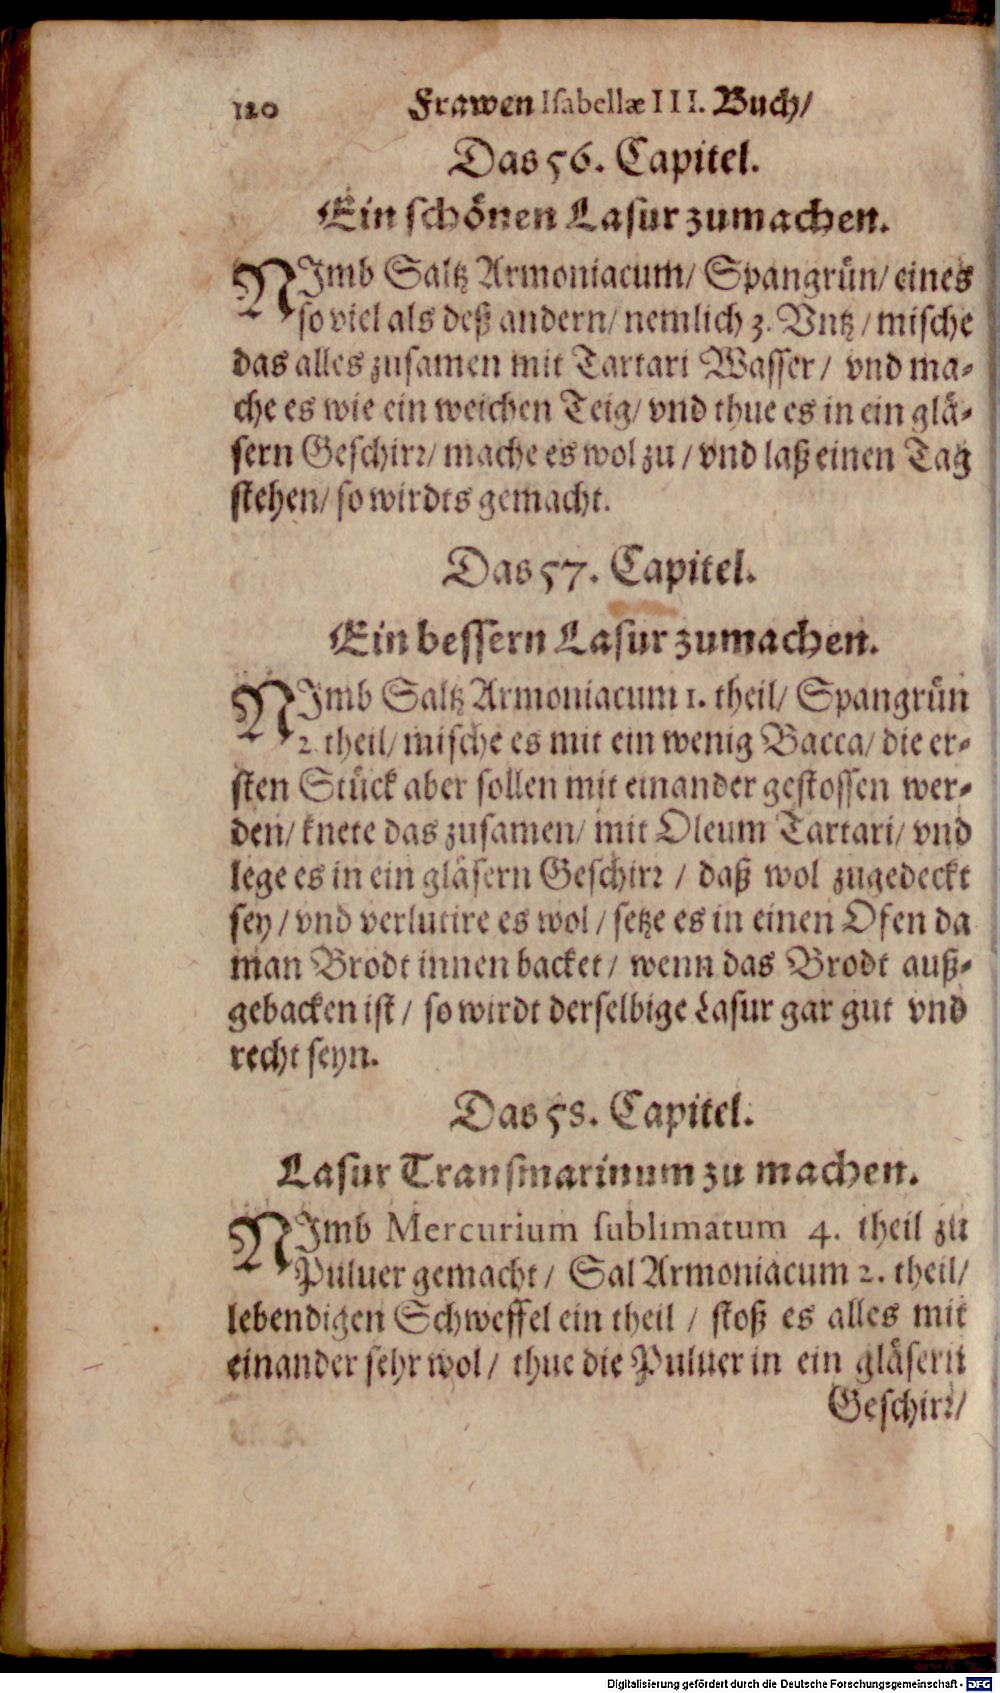 120 Frawen Isabellæ III. Buch/
Das 56. Capitel.
Ein schönen Lasur zumachen.
NImb Saltz Armoniacum/ Spangrün/ eines
so viel als deß andern/ nemlich 3. Vntz/ mische
das alles zusamen mit Tartari Wasser/ vnd ma-
che es wie ein weichen Teig/ vnd thue es in ein glä-
sern Geschirr/ mache es wol zu/ vnd laß einen Tag
stehen/ so wirdts gemacht.
Das 57. Capitel.
Ein bessern Lasur zumachen.
NImb Saltz Armoniacum 1. theil/ Spangrün
2. theil/ mische es mit ein wenig Bacca/ die er-
sten Stück aber sollen mit einander gestossen wer-
den/ knete das zusamen/ mit Oleum Tartari/ vnd
lege es in ein gläsern Geschirr/ daß wol zugedeckt
sey/ vnd verlutire es wol/ setze es in einen Ofen da
man Brodt innen backet/ wenn das Brodt auß-
gebacken ist/ so wirdt derselbige Lasur gar gut vnd
recht seyn.
Das 58. Capitel.
Lasur Transmarinum zu machen.
NImb Mercurium sublimatum 4. theil zu
Puluer gemacht/ Sal Armoniacum 2. theil/
lebendigen Schweffel ein theil/ stoß es alles mit
einander sehr wol/ thue die Puluer in ein gläsern
Geschirr/
Digitalisierung gefördert durch die Deutsche Forschungsgemeinschaft - DFG